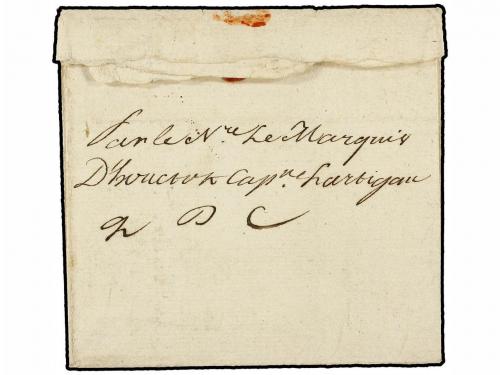 Par le N.re Le Marquis
D'houctok Cap.ne Lartigau
q D C